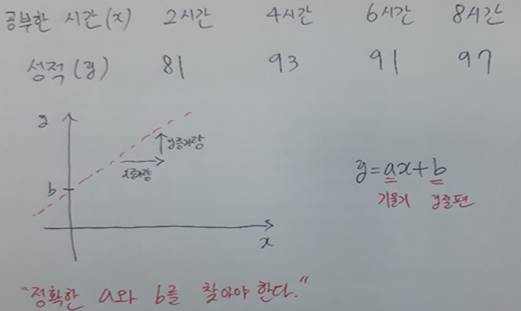 공부한 시간(x) 2시간 4시간 6시간 8시간
성적(y) 81 93 91 97
y
y증가량
x증가량
b
x
y=ax+b
기울기 y절편
"정확한 a와 b를 찾아야 한다."